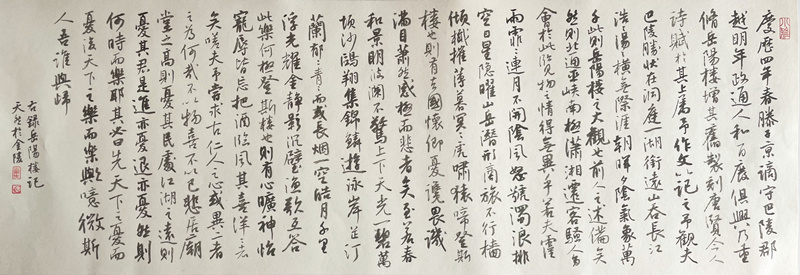 慶歷四年春滕子京謫守巴陵郡
越明年政通人和百廢俱興乃重
脩岳陽樓增其舊製刻唐賢今人
詩賦於其上屬予作文以記之予觀夫
巴陵勝狀在洞庭一湖銜遠山吞長江
浩〻湯〻橫無際涯朝暉夕陰氣象萬
千此則岳陽樓之大觀也前人之述備矣
然則北通巫峽南極瀟湘遷客騷人多
會於此覽物之情得無異乎若夫霪
雨霏〻連月不開陰風怒號濁浪排
空日星隱曜山岳潛形商旅不行檣
傾楫摧薄暮冥〻虎嘯猿啼登斯
樓也則有去國懷鄉憂讒畏譏
滿目蕭然感極而悲者矣至若春
和景明波瀾不驚上下天光一碧萬
頃沙鷗翔集錦鱗游泳岸芷汀
蘭郁〻青〻而或長烟一空皓月千里
浮光耀金靜影沉璧漁歌互答
此樂何極登斯樓也則有心曠神怡
寵辱皆忘把酒臨風其喜洋〻者
矣嗟夫予嘗求古仁人之心或異二者
之為何哉不以物喜不以己悲居廟
堂之高則憂其民處江湖之遠則
憂其君是進亦憂退亦憂然則
何時而樂耶其必曰先天下之憂而
憂後天下之樂而樂歟噫微斯
人吾誰與歸
右錄岳陽樓記
於金陵